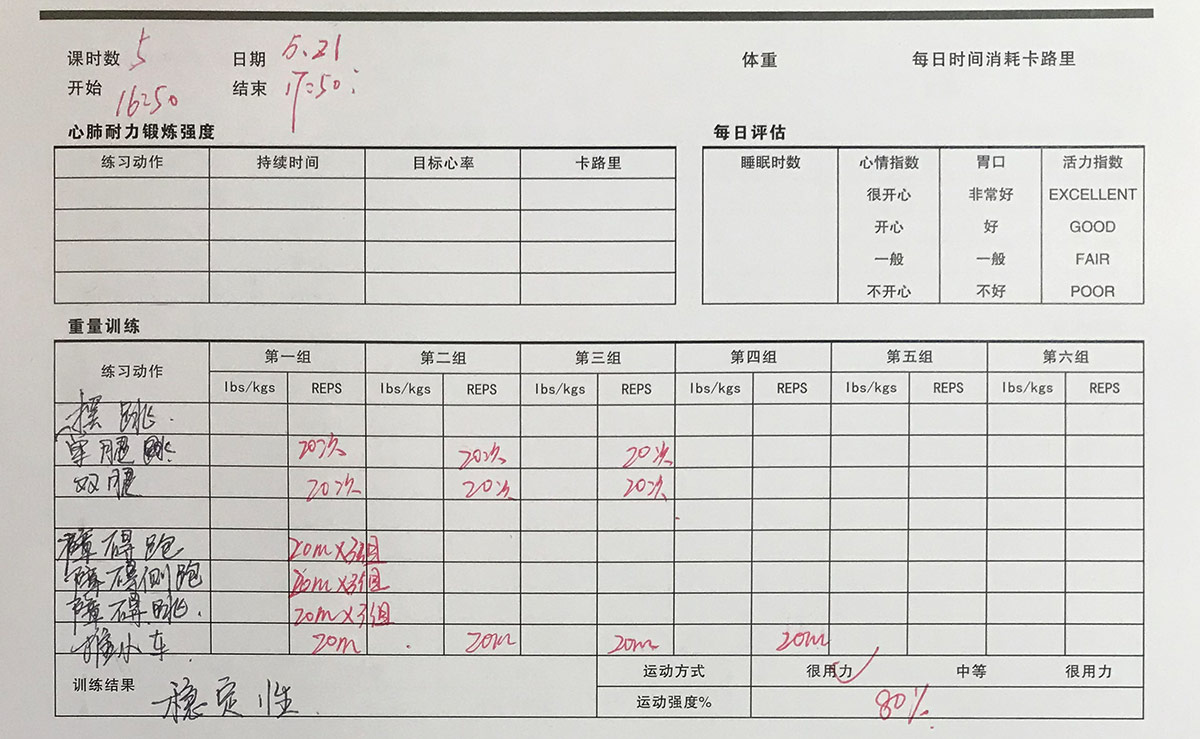 课时数 5 日期 5.21 体重 每日时间消耗卡路里
开始 16:50 结束 17:50
心肺耐力锻炼强度 每日评估
练习动作 持续时间 目标心率 卡路里 睡眠时数 心情指数 胃口 活力指数
很开心 非常好 EXCELLENT
开心 好 GOOD
一般 一般 FAIR
不开心 不好 POOR
重量训练
练习动作 第一组 第二组 第三组 第四组 第五组 第六组
lbs/kgs REPS lbs/kgs REPS lbs/kgs REPS lbs/kgs REPS lbs/kgs REPS lbs/kgs REPS
摆跳.
单腿跳 20次 20次 20次
双腿 20次 20次 20次
障碍跑 20m×3组
障碍侧跑 20m×3组
障碍跳. 20m×3组
推小车. 20m 20m 20m 20m
训练结果 稳定性. 运动方式 很用力 ✓ 中等 很用力
运动强度% 80%